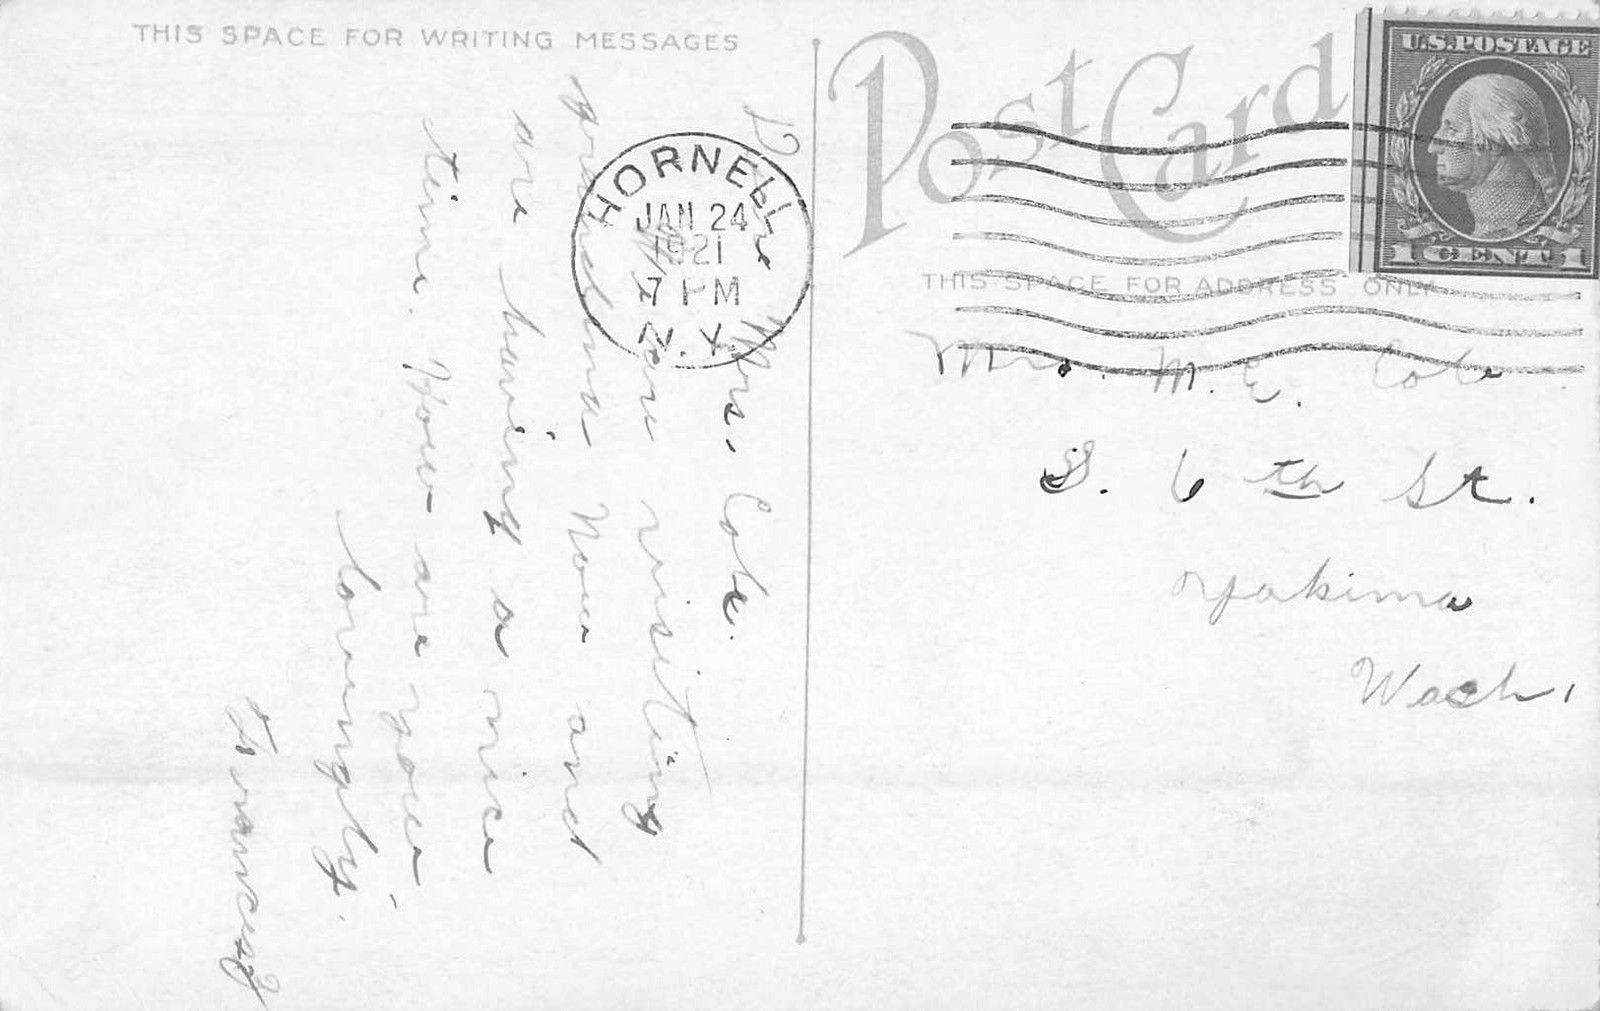 THIS SPACE FOR WRITING MESSAGES
Dear Mrs. Cole.
We are visiting
grandma now and
are having a nice
time. How are you
lovingly.
Frances
HORNELL
JAN 24
1921
7 PM
N.Y.
Post Card
THIS SPACE FOR ADDRESS ONLY
U.S. POSTAGE
1 CENT 1
Mrs. M. E. Cole
S. 6th St.
Yakima
Wash.